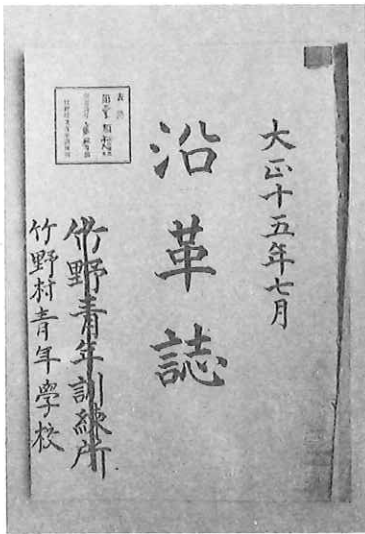 大正十五年七月
沿革誌
竹野青年訓練所
竹野村青年學校